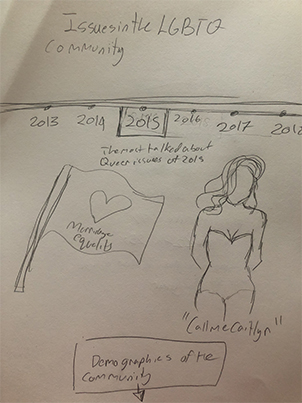 Issues in the LGBTQ
Community
2013 2014 2015 2016 2017 2018
The most talked about
Queer issues of 2015
Marriage
equality
"Call me Caitlyn"
Demographics of the
Community